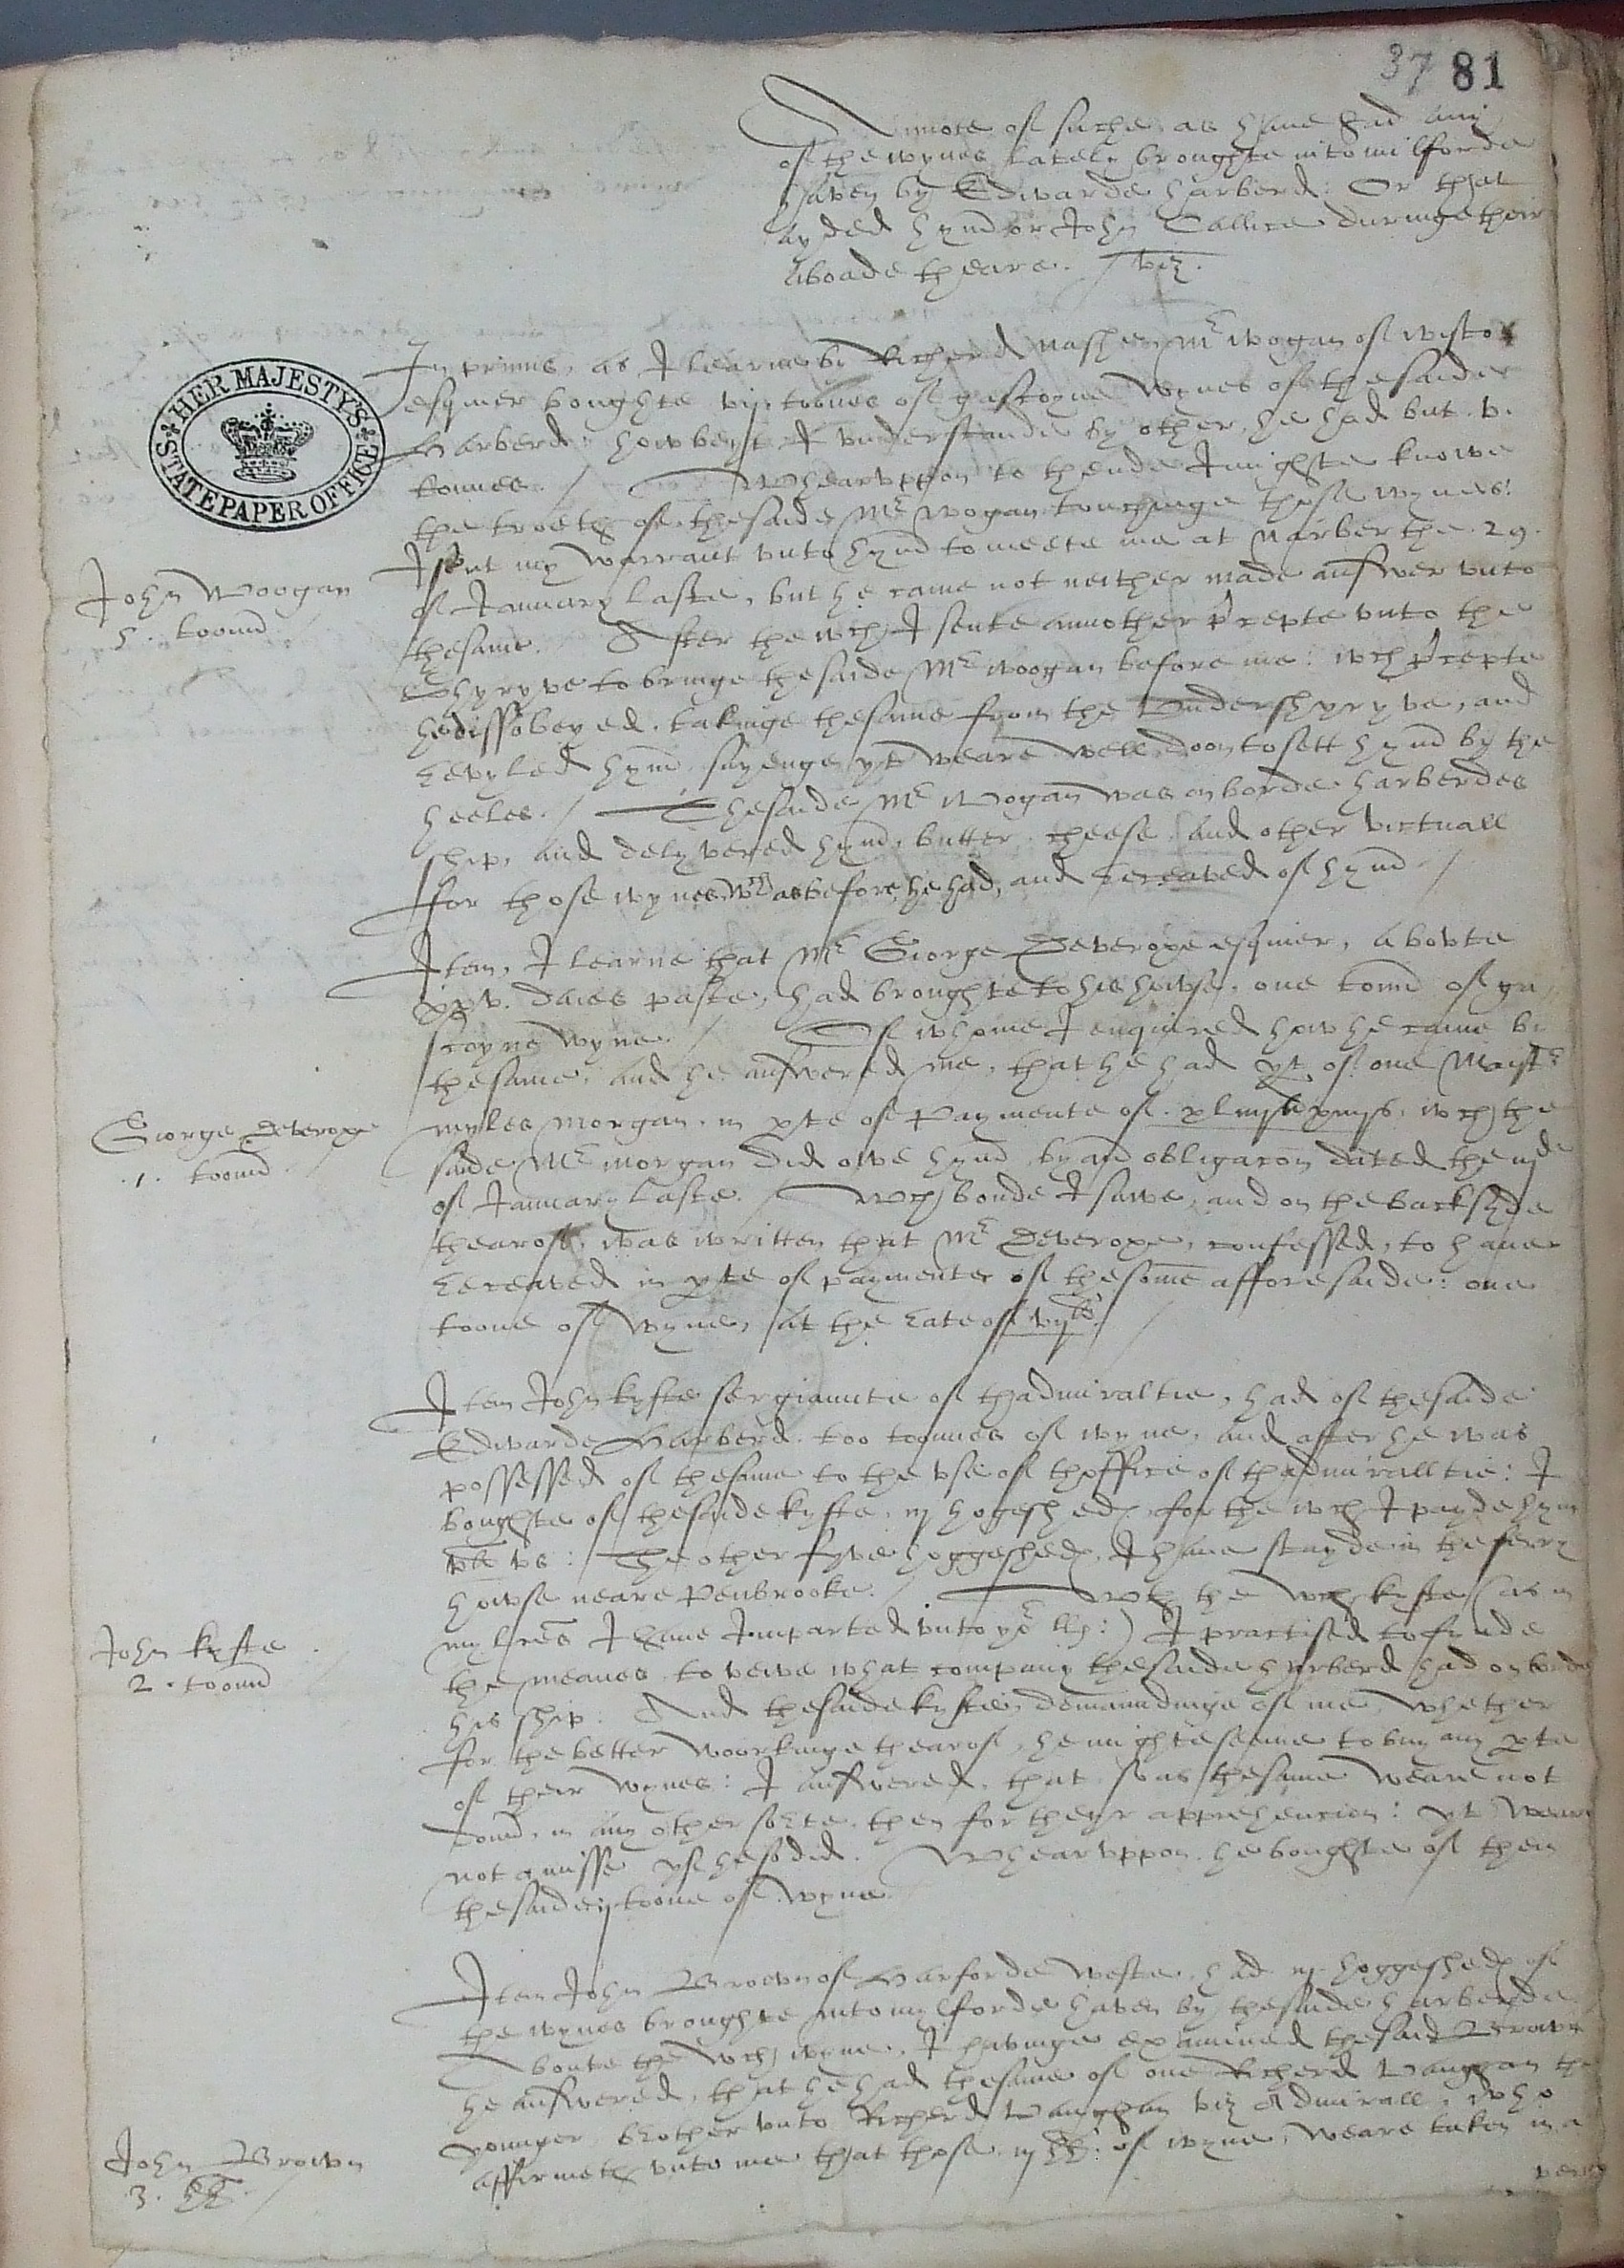 37 81
A note of suche as have had any
of the wynes lately broughte into milforde
haven by Edwarde harberd: Or that
ayded hym or John Callice duringe their
aboade theare. / viz.
HER MAJESTY'S STATE PAPER OFFICE
In primis, as I learne by Richerd Nashe, Mr wogan of wisto
esquier boughte vij toones of gascoyne wynes of the saide
Harberd: howbeyt I understande by other, he had but .v.
tonnes. / Whearuppon to thende I mighte knowe
the troeth of the saide Mr wogan touchinge these wynes:
I sent my warrant unto hym to meete me at Narberthe .29.
of January laste, but he came not neither made answer unto
the same. After the wch I sente another precepte unto the
Shyryve to bringe the saide Mr woogan before me: wch precepte
he dissobeyed, takinge the same from the Undershyryve, and
revyled hym, sayenge yt weare well doon to sett hym by the
heeles. / The saide Mr Wogan was on borde harberdes
ship, and delyvered hym, butter, cheese, and other victuall
for those wynes wch as before he had, and receaved of hym /
John Woogan
5. toonn
Item, I learne that Mr George Deveroxe esquier, abovte
xxv. daies paste, had broughte to his howse, one tonn of ga
scoyne wyne. / Of whome I enquired how he came by
the same, and he answered me, that he had yt of one Maistr
myles morgan, in pte of Paymente of wch the
saide Mr morgan did owe hym, by an obligacon dated the iijde
of January laste. / Wch bonde I sawe, and on the backsyde
thearof, was written that Mr Deveroxe, confessed, to have
receaved in pte of paymente of the some afforesaide: one
toone of wyne, at the rate of vijli. /
George Deveroxe
.1. toonn
Item John kyfte sergiaunte of thadmiraltie, had of the saide
Edwarde Harberd too toonnes of wyne, and after he was
possessed of the same to the use of thoffice of thadmiralltie: I
boughte of the saide kyfte, iij hogeshed, for the wch I payde hym
vli vs: The other fyve hoggeshed, I have stayde in the ferry
howse neare Penbrooke. / Wth the wch kyfte (as in
my lres I have Imparted unto yor llp:) I practised to finde
the meanes to vewe what company the saide harberd had on borde
his ship. And the saide kyfte, demaundinge of me, whether
for the better woorkinge thearof, he mighte seeme to buy any pte
of their wynes: I answered, that so as the same weare not
donn, in any other sorte, then for theyr apprehencion: yt weare
not amisse yf he so did. Whearuppon he boughte of them
the saide ij toone of wyne.
John kyfte
2. toonn
Item John Brown of Harforde weste, had iij hoggeshed of
the wynes broughte into mylforde haven by the saide harberde
Aboute the wch wyne, I havinge examined the said Brown
he answered, that he had the same of one Richerd Vaughan the
younger, brother unto Richerd Vaughan viz Admirall, who
affirmeth unto me that those iij hh: of wyne, weare taken in a
John Brown
3. hh.